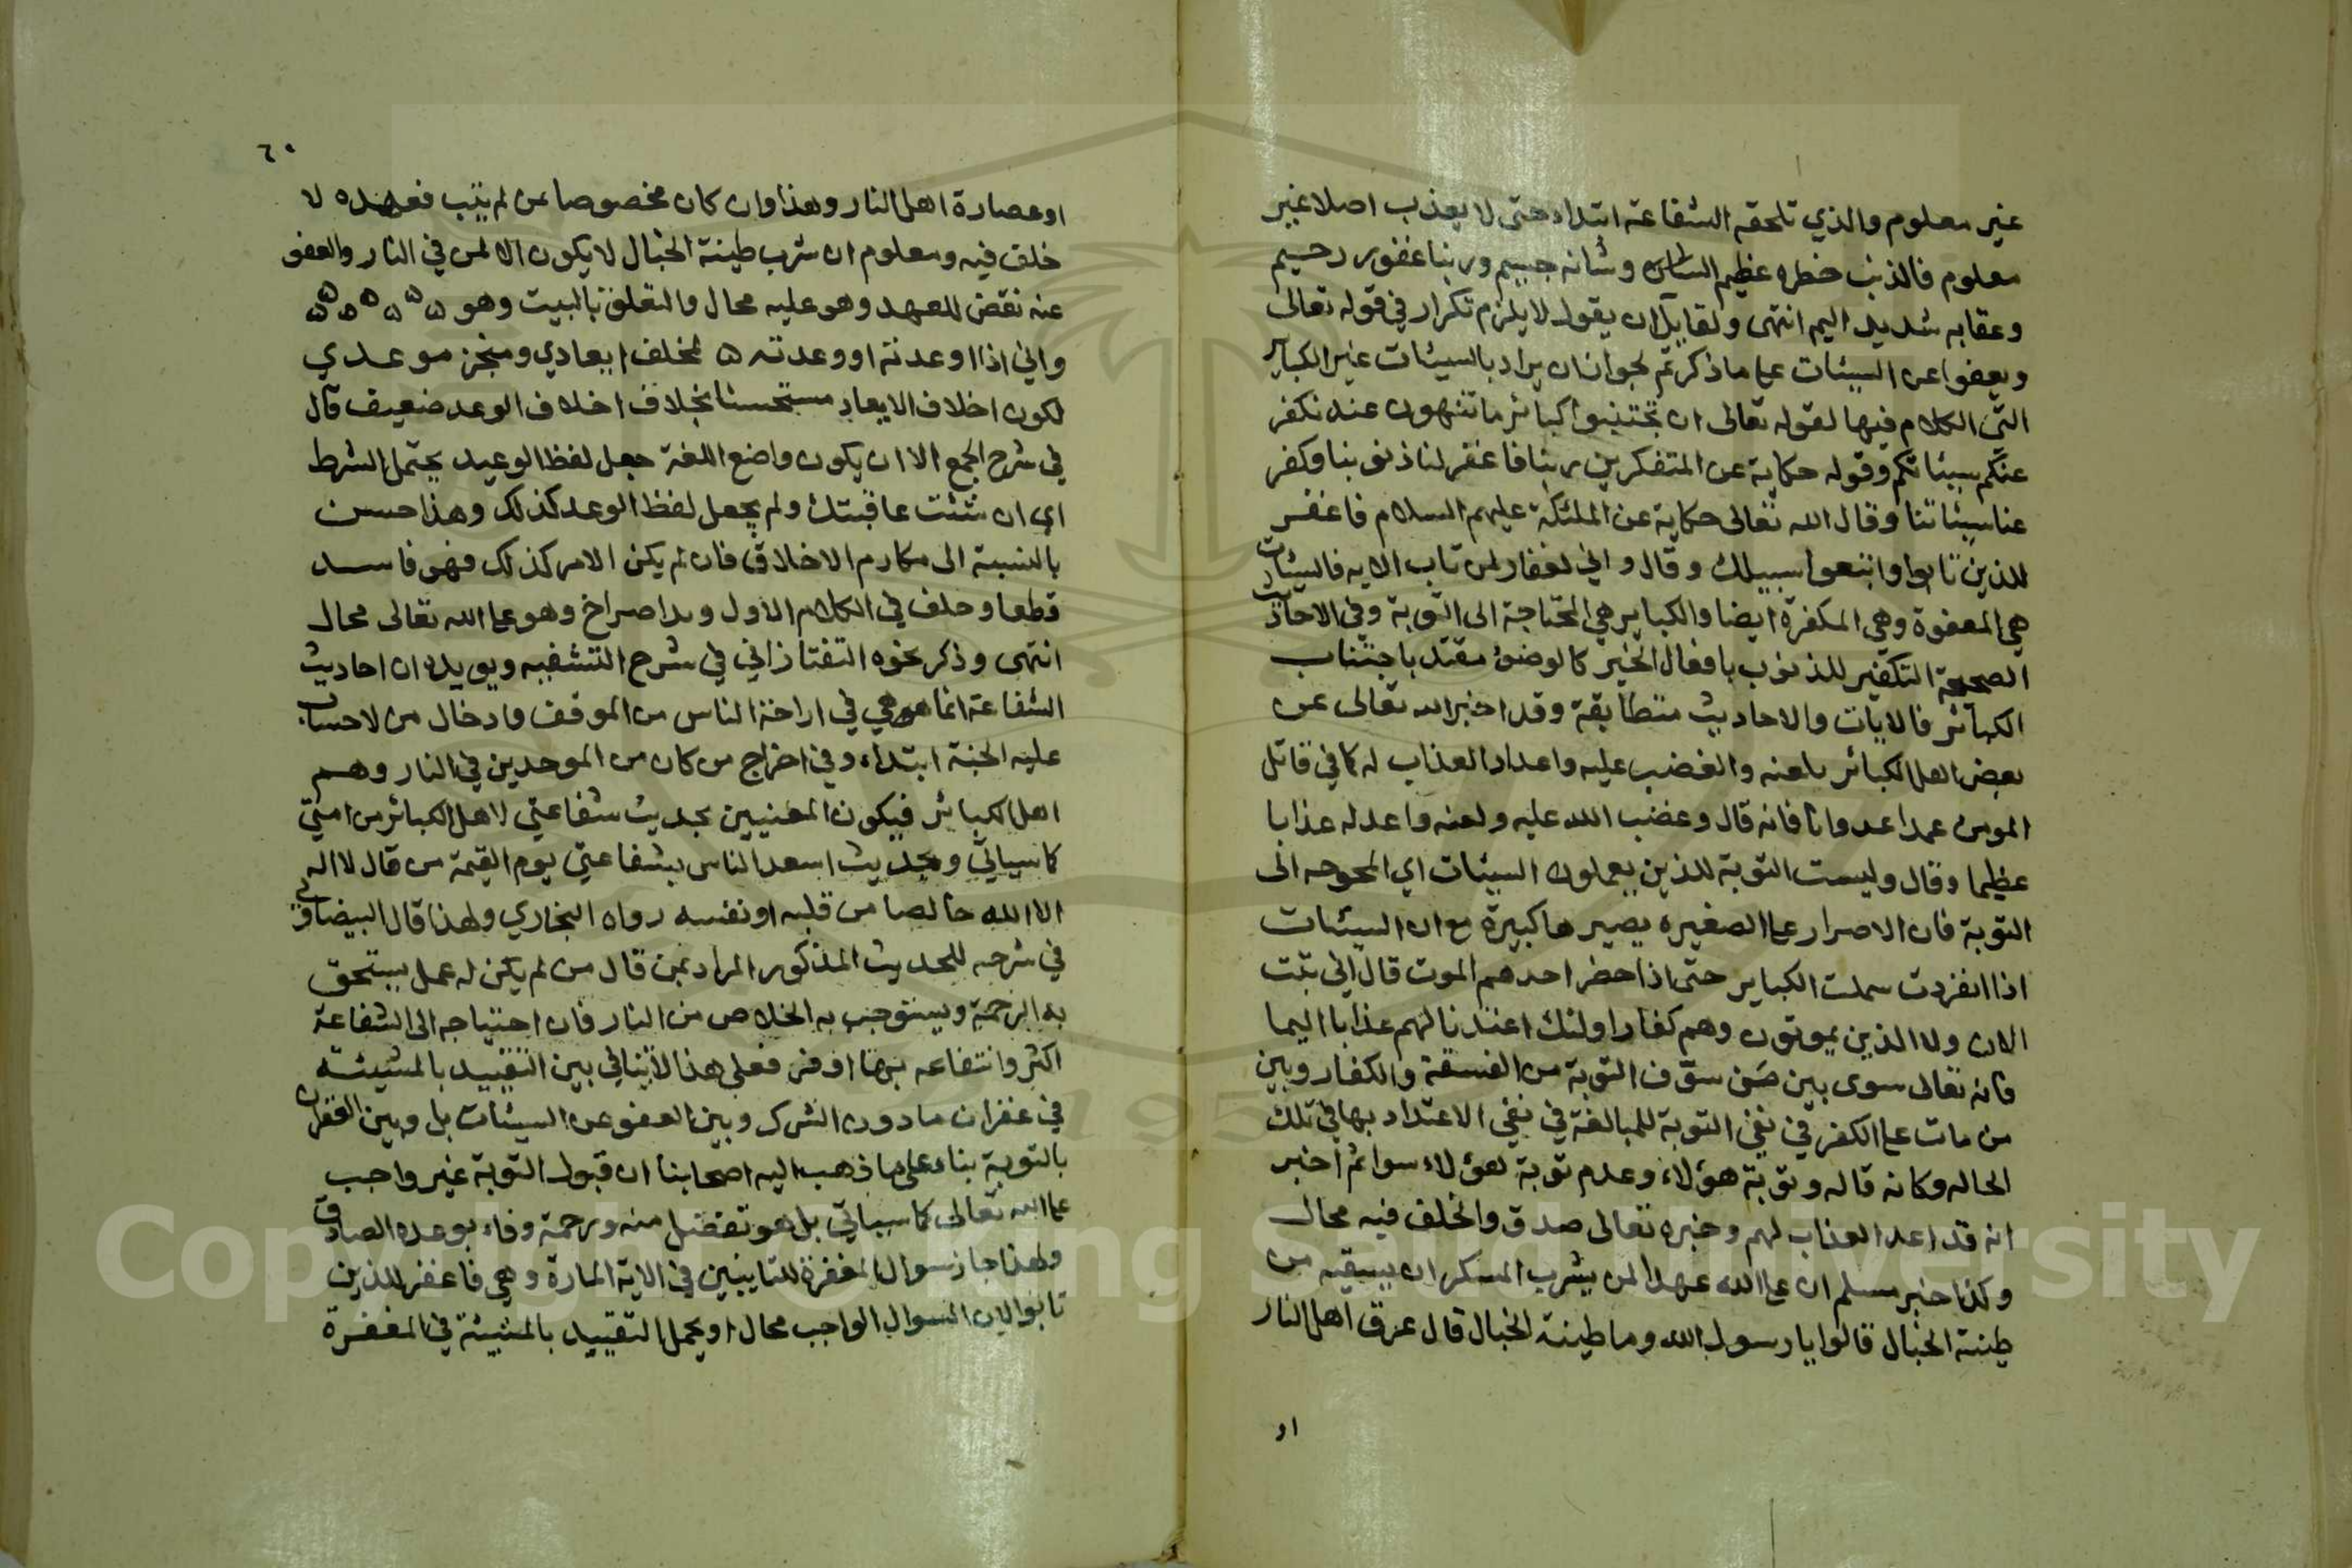 غير معلوم والذي تلحقه الشفاعة ابتداء حتى لا يعذب اصلا غير
معلوم فالذنب خطره عظيم وشانه جسيم وربنا غفور رحيم
وعقابه شديد اليم انتهى ولقايل ان يقول لا يلزم تكرار في قوله تعالى
ويعفوا عن السيئات على ما ذكرتم لجواز ان يراد بالسيئات غير الكباير
التي الكلام فيها لقوله تعالى ان تجتنبوا كبائر ما تنهون عنه نكفر
عنكم سيئاتكم وقوله حكاية عن المتفكرين ربنا فاغفر لنا ذنوبنا وكفر
عنا سيئاتنا وقال الله تعالى حكاية عن الملئكة عليهم السلام فاغفر
للذين تابوا واتبعوا سبيلك وقال واني لغفار لمن تاب الايه فالسيئات
هي المعفوة وهي المكفرة ايضا والكباير هي المحتاجة الى التوبة وفي الاحاديث
الصحيحة التكفير للذنوب بافعال الخير كالوضوء مقيد باجتناب
الكبائر فالايات والاحاديث متطابقة وقد اخبر الله تعالى عن
بعض اهل الكبائر بلعنه والغضب عليه واعداد العذاب له كما في قاتل
المومن عمدا عدوانا فانه قال وغضب الله عليه ولعنه واعد له عذابا
عظيما وقال وليست التوبة للذين يعملون السيئات اي المحوجه الى
التوبة فان الاصرار على الصغيره يصيرها كبيرة مع ان السيئات
اذا انفردت سملت الكباير حتى اذا حضر احدهم الموت قال اني تبت
الان ولا الذين يموتون وهم كفار اولئك اعتدنا لهم عذابا اليما
فانه تعالى سوى بين من سوف التوبة من الفسقة والكفار وبين
من مات على الكفر في نفي التوبة للمبالغة في نفي الاعتداد بها في تلك
الحاله وكانه قال وتوبة هؤلاء وعدم توبة هؤلاء سوا ثم اخبر
انه قد اعد العذاب لهم وخبره تعالى صدق والخلف فيه محال
وكذا خبر مسلم ان على الله عهدا لمن يشرب المسكر ان يسقيه من
طينة الخبال قالوا يا رسول الله وما طينة الخبال قال عرق اهل النار
او
٦٠
او عصارة اهل النار وهذا وان كان مخصوصا بمن لم يتب فعهده لا
خلف فيه ومعلوم ان شرب طينة الخبال لا يكون الا لمن في النار والعفو
عنه نقض للعهد وهو عليه محال والتعلق بالبيت وهو ه ه ه ه ه
واني اذا اوعدته او وعدته ه لمخلف ايعادي ومنجز موعدي
لكون اخلاف الايعاد مستحسنا بخلاف اخلاف الوعد ضعيف قال
في شرح الجمع الا ان يكون واضع اللغة جعل لفظ الوعيد يحتمل الشرط
اي ان شئت عاقبتك ولم يجعل لفظ الوعد كذلك وهذا حسن
بالنسبة الى مكارم الاخلاق فان لم يكن الامر كذلك فهو فاسد
قطعا وحلف في الكلام الاول وهو على الله تعالى محال
انتهى وذكر نحوه التفتازاني في شرح ويويده ان احاديث
الشفاعة انما هي في اراحة الناس من الموقف وادخال من لا حساب
عليه الجنة ابتداء وفي اخراج من كان من الموحدين في النار وهم
اهل الكبائر فيكون المعنيين بحديث شفاعتي لاهل الكبائر من امتي
كما سياتي وبحديث اسعد الناس بشفاعتي يوم القيمة من قال لا اله
الا الله خالصا من قلبه او نفسه رواه البخاري ولهذا قال البيضاوي
في شرحه للحديث المذكور المراد بمن قال من لم يكن له عمل يستحق
به الرحمة ويستوجب به الخلاص من النار فان احتياجه الى الشفاعة
اكثر وانتفاعه بها اوفر فعلى هذا لا تنافي بين التقييد بالمشيئة
في غفران ما دون الشرك وبين العفو عن السيئات بل وبين الغفران
بالتوبة بناء على ما ذهب اليه اصحابنا ان قبول التوبة غير واجب
على الله تعالى كما سياتي بل هو تفضل منه ورحمة وفاء بوعده الصادق
ولهذا جاز سوال المغفرة للتايبين في الاية المارة وهي فاغفر للذين
تابوا لان السوال الواجب محال او يحمل التقييد بالمشيئة في المغفرة
Copyright © King Saud University